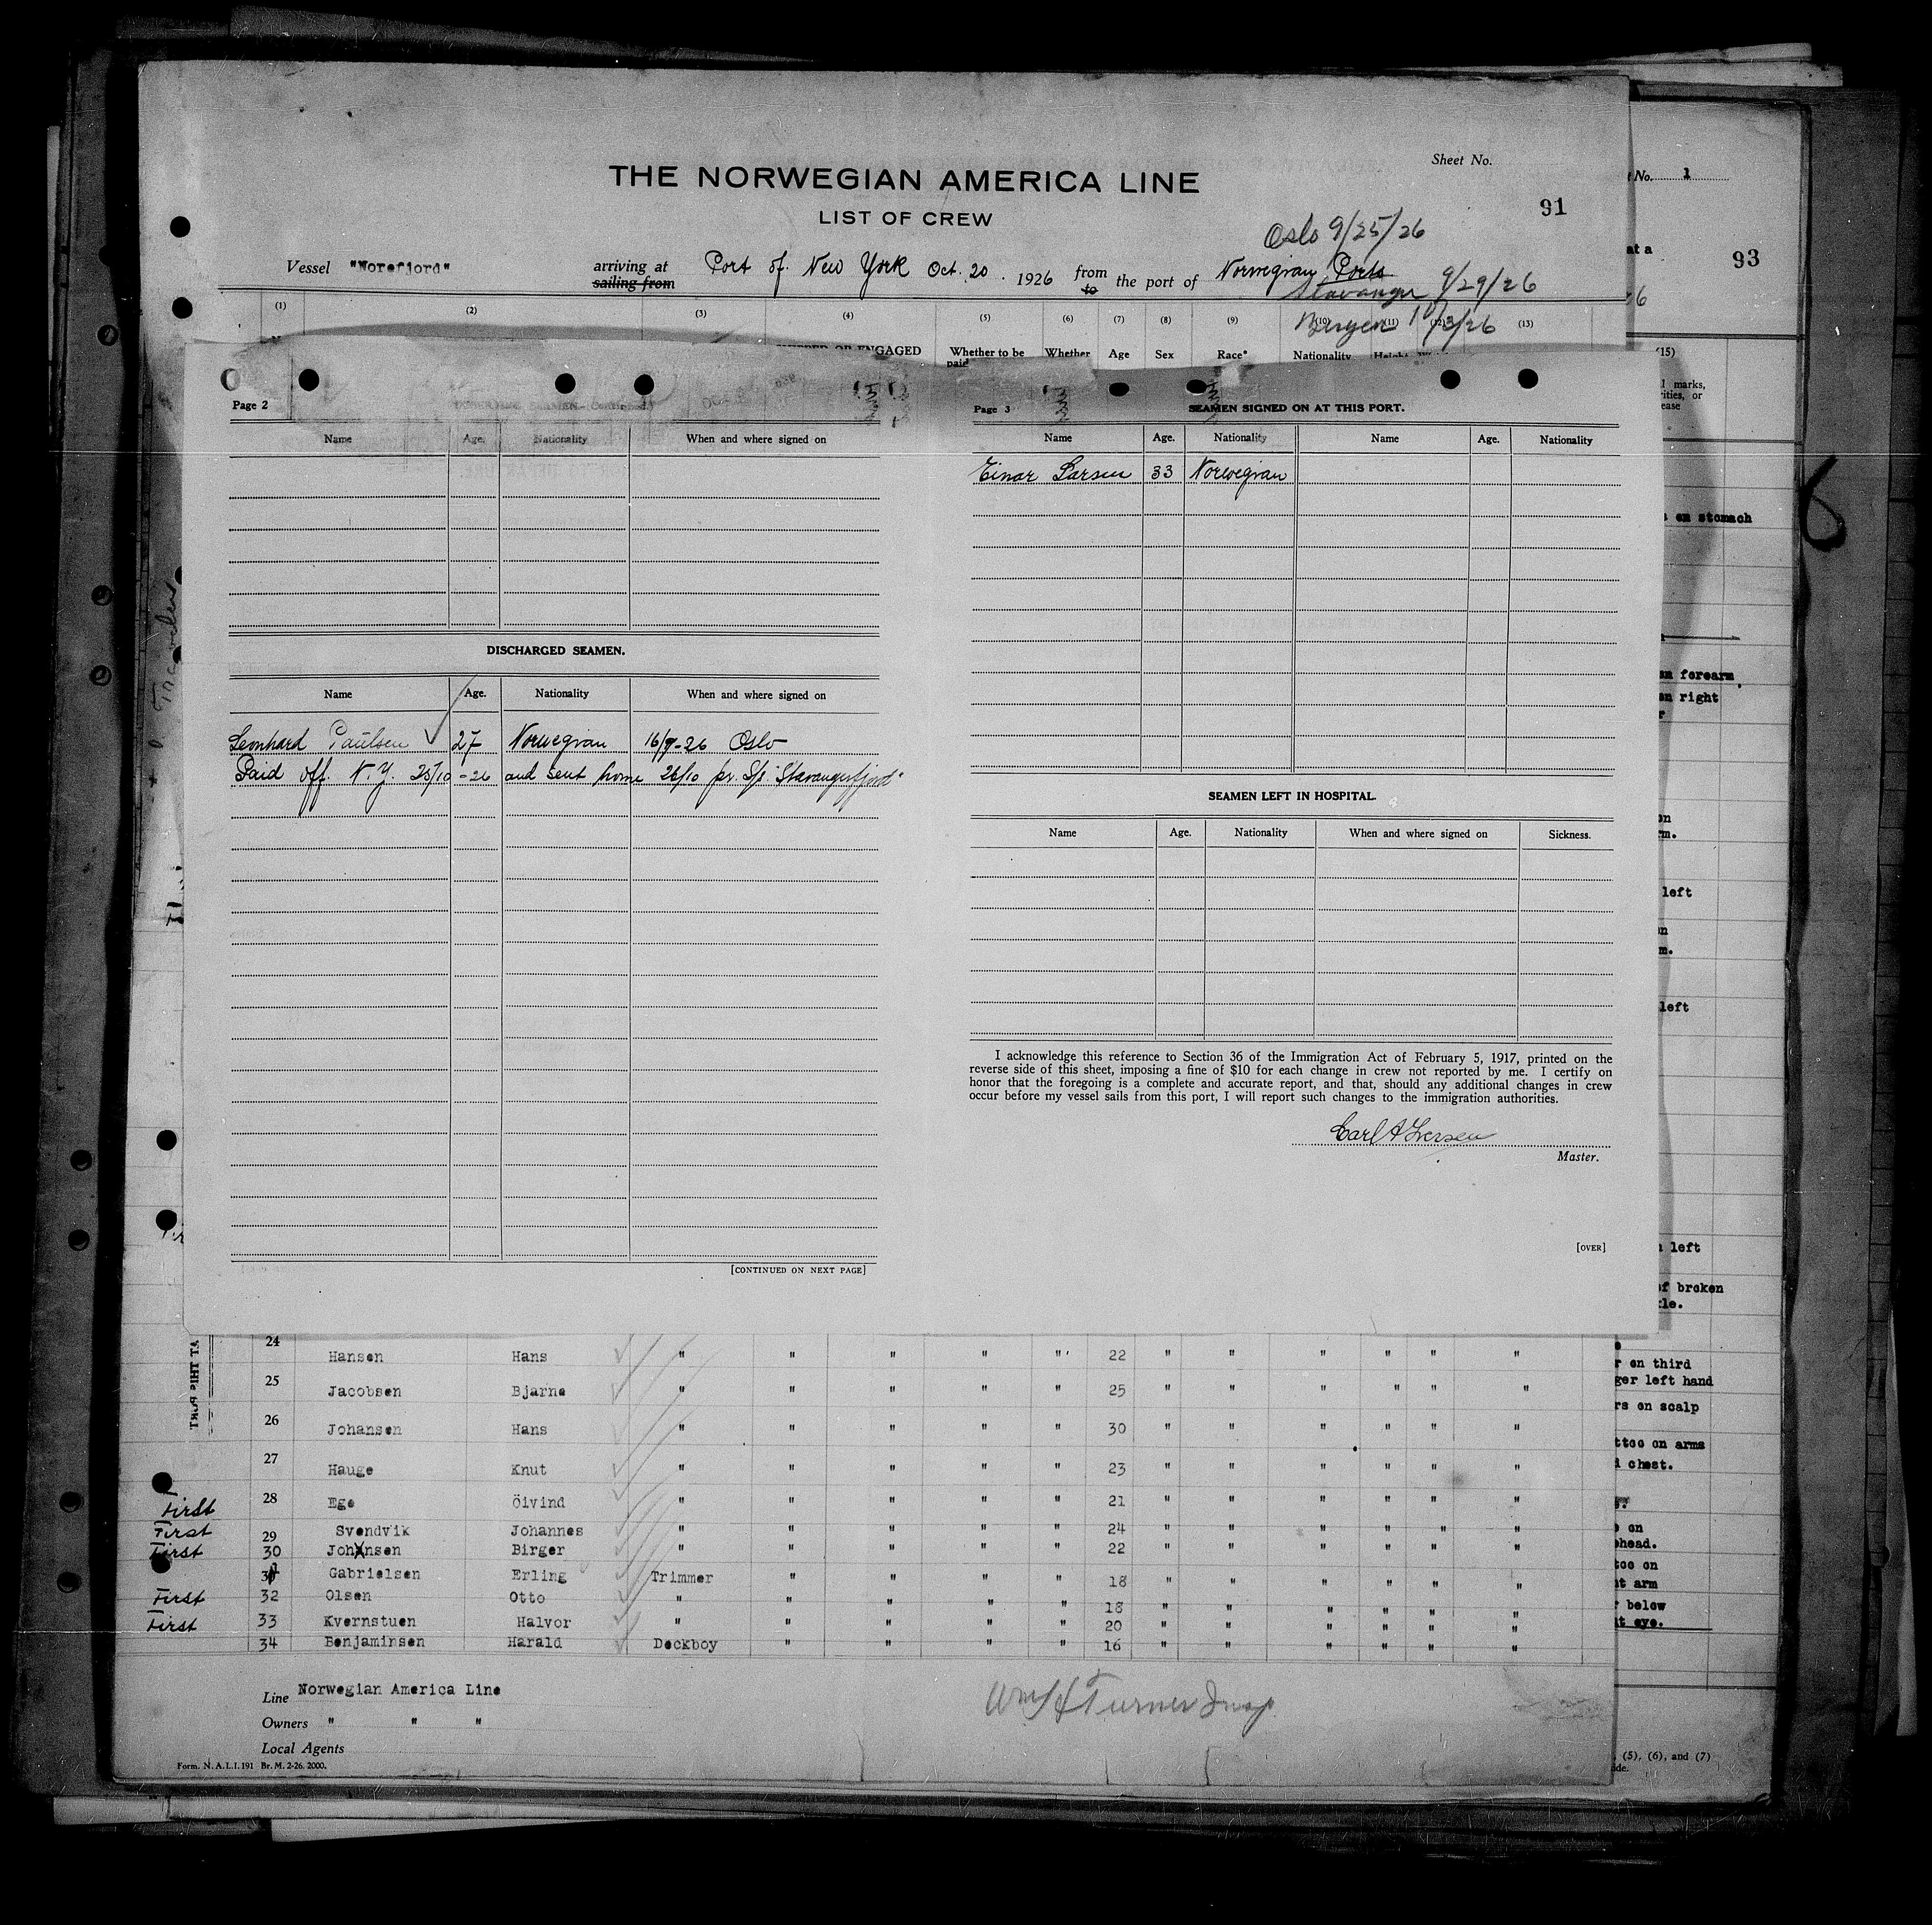 Sheet No.
THE NORWEGIAN AMERICA LINE
LIST OF CREW
91
Oslo 9/25/26
Vessel "Norefjord" arriving at sailing from Port of New York Oct. 20. 1926 from to the port of Norwegian Ports
Stavanger 9/29/26
Bergen 10/3/26
(1) (2) (3) (4) (5) (6) (7) (8) (9) (10) (11) (12) (13)
OR ENGAGED Whether to be Whether Age Sex Race* Nationality
paid
Page 2
Name Age. Nationality When and where signed on
DISCHARGED SEAMEN.
Name Age. Nationality When and where signed on
Leonhard Paulsen 27 Norwegian 16/9-26 Oslo
Paid off. N.Y. 25/10 -26 and sent home 26/10 pr. S/s. "Stavangerfjord"
[CONTINUED ON NEXT PAGE]
Page 3 SEAMEN SIGNED ON AT THIS PORT.
Name Age. Nationality Name Age. Nationality
Einar Larsen 33 Norwegian
SEAMEN LEFT IN HOSPITAL.
Name Age. Nationality When and where signed on Sickness.
I acknowledge this reference to Section 36 of the Immigration Act of February 5, 1917, printed on the
reverse side of this sheet, imposing a fine of $10 for each change in crew not reported by me. I certify on
honor that the foregoing is a complete and accurate report, and that, should any additional changes in crew
occur before my vessel sails from this port, I will report such changes to the immigration authorities.
Carl A Iversen
Master.
[OVER]
24 Hansen Hans " " " " " 22 " " " " " "
25 Jacobsen Bjarne " " " " " 25 " " " " " "
26 Johansen Hans " " " " " 30 " " " " " "
27 Hauge Knut " " " " " 23 " " " " " "
First 28 Ege Öivind " " " " " 21 " " " " " "
First 29 Svendvik Johannes " " " " " 24 " " " " " "
First 30 Johansen Birger " " " " " 22 " " " " " "
31 Gabrielsen Erling Trimmer " " " " 18 " " " " " "
First 32 Olsen Otto " " " " " 18 " " " " " "
First 33 Kvernstuen Halvor " " " " " 20 " " " " " "
34 Benjaminsen Harald Deckboy " " " " 16 " " " " " "
Line Norwegian America Line
Owners " " "
Local Agents
Wm H Turner Insp
Form. N. A. L. I. 191 Br. M. 2-26. 2000.
No. 1
at a
93
(15)
marks,
on stomach
6
on forearm
on right
left
on
left
left
of broken
on third
left hand
on scalp
on arms
chest.
on
on
arm
below
eye.
(5), (6), and (7)
AT THIS PORT